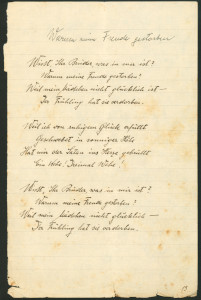 Warum meine Freude gestorben
Wisst, Ihr Brüder, was in mir ist?
Warum meine Freude gestorben?
Weil mein Mädchen nicht glücklich ist –
Der Frühling hat sie verdorben.
Weil ich von ruhigem Glück erfüllt
in sonniger Höhe
Hat mir der ins Herz gebrüllt
Ein Wehe! Dreimal Wehe!
Wisst, Ihr Brüder, was in mir ist?
Warum meine Freude gestorben?
Weil mein Mädchen nicht glücklich –
Der Frühling hat sie verdorben.